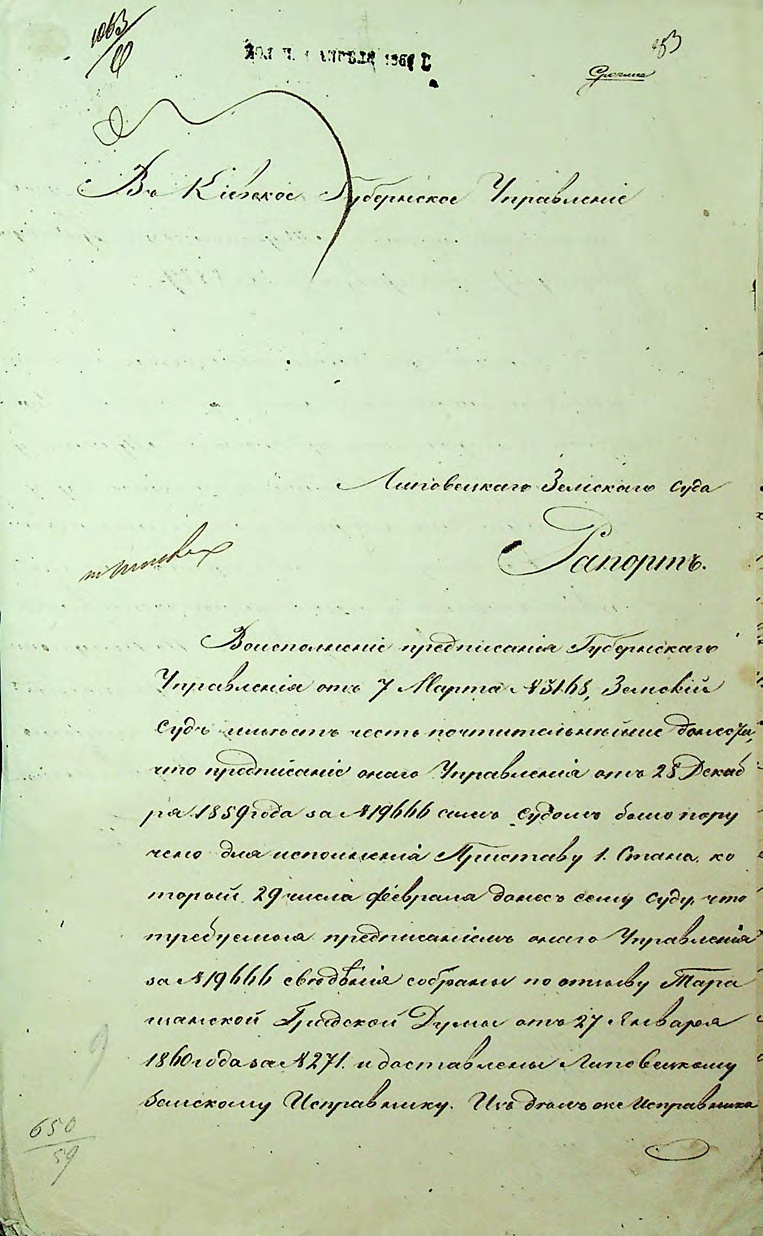 1063
353
Срочное
Въ Кіевское Губернское Управленіе
Липовецкаго Земскаго Суда
Рапортъ.
Воисполненіе предписанія Губернскаго
Управленія отъ 7 Марта №3168, Земскій
Судъ имѣетъ честь почтительнѣйше донести,
что предписаніе онаго Управленія отъ 28 Декаб
ря 1859 года за №19666 симъ Судомъ было пору
чено для исполненія Приставу 1. Стана, ко
торый 29 числа февраля донесъ сему Суду, что
требуемыя предписаніемъ онаго Управленія
за №19666 свѣдѣнія собраны по отзыву Тара
щанской Градской Думы отъ 27 Января
1860 года за №271. и доставлены Липовецкому
Земскому Исправнику. Изъ дѣлъ же Исправника
650
59